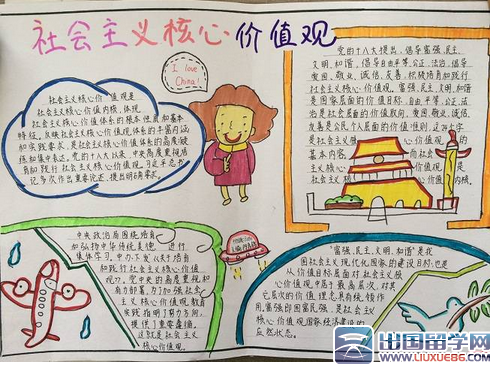 社会主义核心价值观
I love
China!
社会主义核心价值观是
社会主义核心价值体系的内核,体现
社会主义核心价值体系的根本性质和基本
特征,反映社会主义核心价值体系的丰富内涵
和实践要求,是社会主义核心价值体系的高度凝
练和集中表达。党的十八大以来,中央高度重视培
育和践行社会主义核心价值观。习近平总书
记多次作出重要论述、提出明确要求。
党的十八大提出,倡导富强、民主、
文明、和谐,倡导自由平等、公正、法治,倡导
爱国、敬业、诚信、友善,积极培育和践行
社会主义核心价值观。富强、民主、文明、和谐
是国家层面的价值目标,自由、平等、公正、法
治是社会层面的价值取向,爱国、敬业、诚信、
友善是公民个人层面的价值准则,这24个字
是社会主义核心价值观的
基本内容,
中央政治局围绕培育
和弘扬中华传统美德 进行
集体学习,中办下发《关于培育
和践行社会主义核心价值
观》。党中央的高度重视和
有力部署,为了加强社会主
义核心价值观教育
实践指明了努力方向,
提供了重要遵循。
这就是社会主义
核心价值观。
“富强、民主、文明、和谐”是我
国社会主义现代化国家的建设目标,也是
从价值目标层面对社会主义核
心价值观中居于最高层次,对其
它层次的价值理念具有统领作
用。富强即国富民强,是社会主义
核心价值观国家经济建设的
应然状态。
出国留学网
www.LIUXUE86.COM